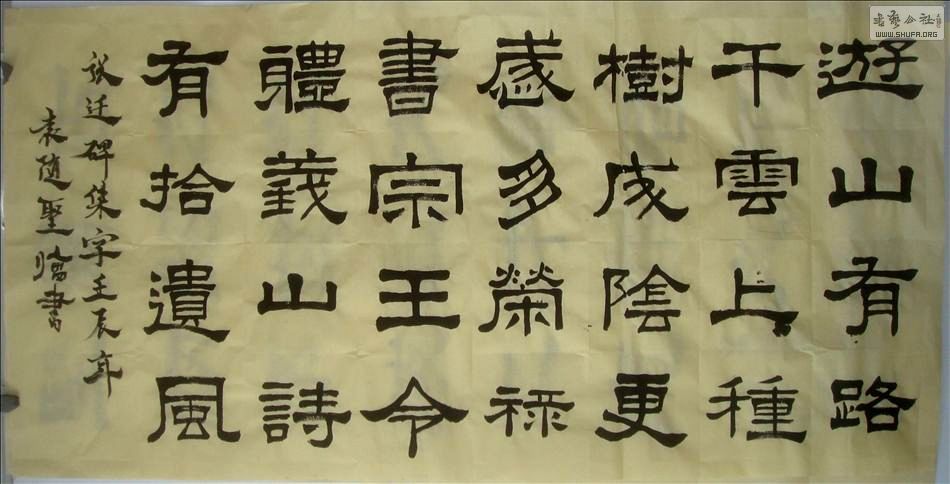 遊山有路
干雲上種
樹成陰更
感多榮祿
書宗王令
體義山詩
有拾遺風
张迁碑集字壬辰年
袁随聖臨書
書藝公社
WWW.SHUFA.ORG